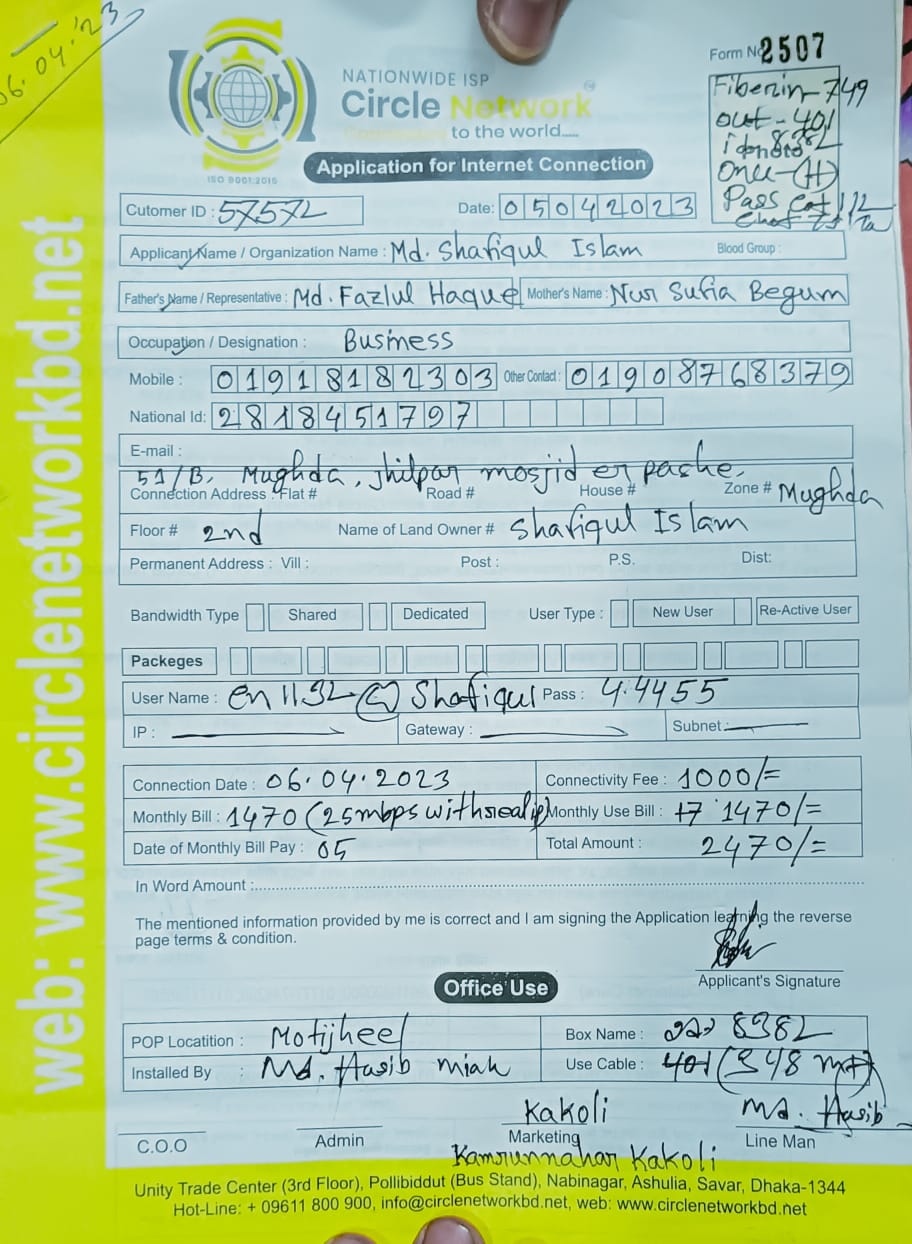 06.04.'23
NATIONWIDE ISP
Circle Network
to the world.....
ISO 9001:2015
Application for Internet Connection
Form No 2507
Fiberin-749
out-401
Onu-(H)
Pass
Cutomer ID : 57572
Date: 05042023
Applicant Name / Organization Name : Md. Shafiqul Islam Blood Group :
Father's Name / Representative : Md. Fazlul Haque Mother's Name : Nur Sufia Begum
Occupation / Designation : Business
Mobile : 01918182303 Other Contact : 01908768379
National Id: 2818451797
E-mail :
51/B, Mughda, jhilpar mosjid er pashe.
Connection Address : Flat # Road # House # Zone # Mughda
Floor # 2nd Name of Land Owner # Shafiqul Islam
Permanent Address : Vill : Post : P.S. Dist:
Bandwidth Type Shared Dedicated User Type : New User Re-Active User
Packeges
User Name : Shafiqul Pass : 4.4455
IP : Gateway : Subnet :
Connection Date : 06.04.2023 Connectivity Fee : 1000/=
Monthly Bill : 1470 (25mbps with real ip) Monthly Use Bill : 1470/=
Date of Monthly Bill Pay : 05 Total Amount : 2470/=
In Word Amount :
The mentioned information provided by me is correct and I am signing the Application learning the reverse
page terms & condition.
Applicant's Signature
Office Use
POP Locatition : Motijheel Box Name : 8382
Installed By : Md. Hasib Miah Use Cable : 401 (348 mt)
Kakoli Md. Hasib
C.O.O Admin Marketing Line Man
Kamrunnahar Kakoli
Unity Trade Center (3rd Floor), Pollibiddut (Bus Stand), Nabinagar, Ashulia, Savar, Dhaka-1344
Hot-Line: + 09611 800 900, info@circlenetworkbd.net, web: www.circlenetworkbd.net
web: www.circlenetworkbd.net